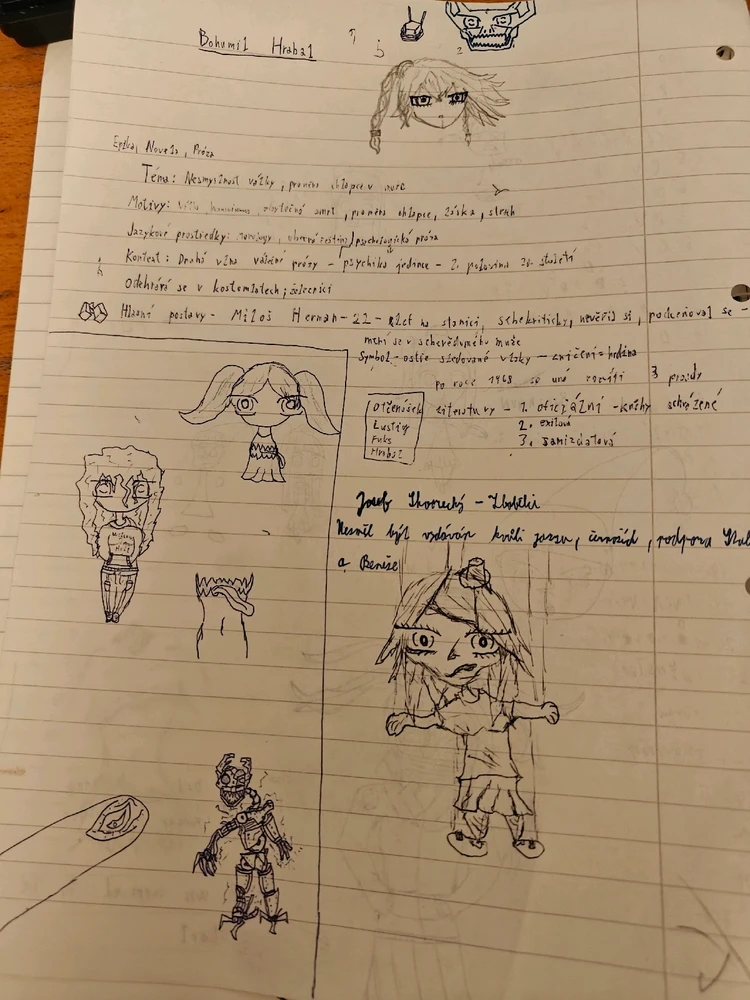 Bohumil Hrabal
Epika, Novela, Próza
Téma: Nesmyslnost války, proměna chlapce v muže
Motivy: válka, zbytečná smrt, proměna chlapce, láska, strach
Jazykové prostředky: psychologická próza
Kontext: Druhá vlna válečné prózy - psychika jedince - 2. polovina 20. století
Odehrává se v kostomlatech; železnici
Hlavní postavy - Miloš Herman - 22 - na stanici, sebekritický, nevěřil si, podceňoval se -
mění se v sebevědomého muže
Symbol - ostře sledované vlaky - zničení = hrdina
po roce 1968 se 3 proudy
Otčenášek
Lustig
Fuks
Hrabal
literatury - 1. oficiální - knihy schválené
2. exilová
3. samizdatová
Josef Škvorecký - Zbabělci
Nesměl být vydáván kvůli jazzu, černoších, podpora
a Beneše